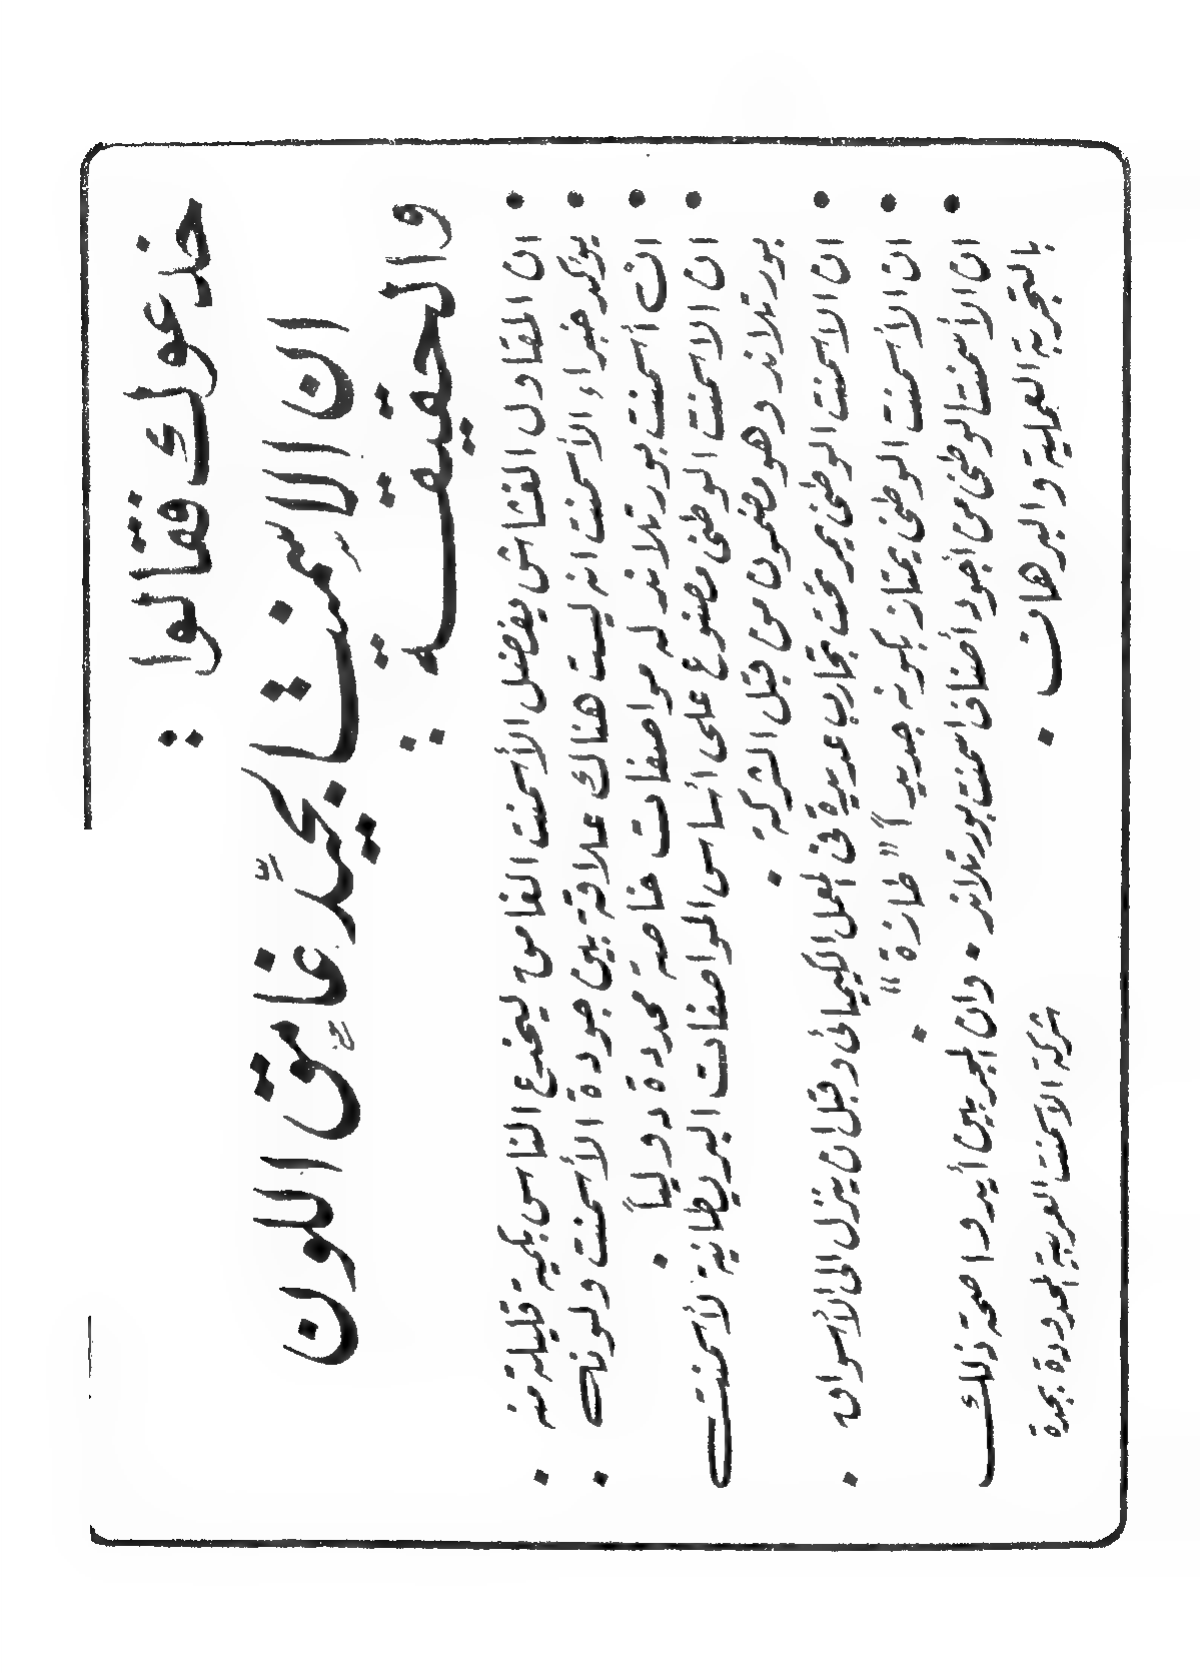 خدعوك فقالوا :
ان الاسمنت الجيّد غامق اللون
والحقيقة :
• ان المقاول الغشاش يفضل الأسمنت الغامق ليخدع الناس بكمية قليلة منه .
• يؤكد خبراء الأسمنت انه ليست هناك علاقة بين جودة الأسمنت ولونه .
• ان أسمنت بورتلاند له مواصفات خاصة محددة دولياً .
• ان الاسمنت الوطني مصنوع على أساس المواصفات البريطانية لأسمنت
بورتلاند وهو مضمون من قبل الشركة .
• ان الاسمنت الوطني يمر تحت تجارب عديدة في المعمل الكيميائي وقبل ان ينزل الى الأسواق .
• ان الأسمنت الوطني يمتاز بكونه جديداً " طازة " .
• ان الأسمنت الوطني من أجود أصناف اسمنت بورتلاند . وان المجربين أيدوا صحة ذلك
بالتجربة العملية والبرهان .
شركة الاسمنت العربية المحدودة بجدة